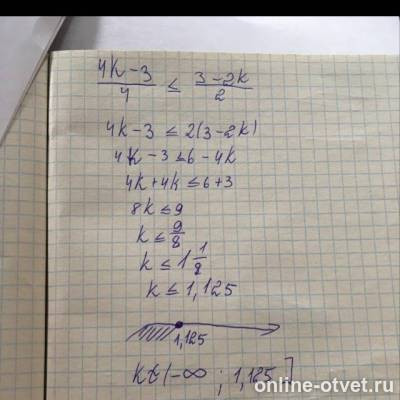 4k-3/4 ≤ 3-2k/2
4k-3 ≤ 2(3-2k)
4k-3 ≤ 6-4k
4k+4k ≤ 6+3
8k ≤ 9
k ≤ 9/8
k ≤ 1 1/8
k ≤ 1,125
1,125
k∈(-∞ ; 1,125]
online-otvet.ru